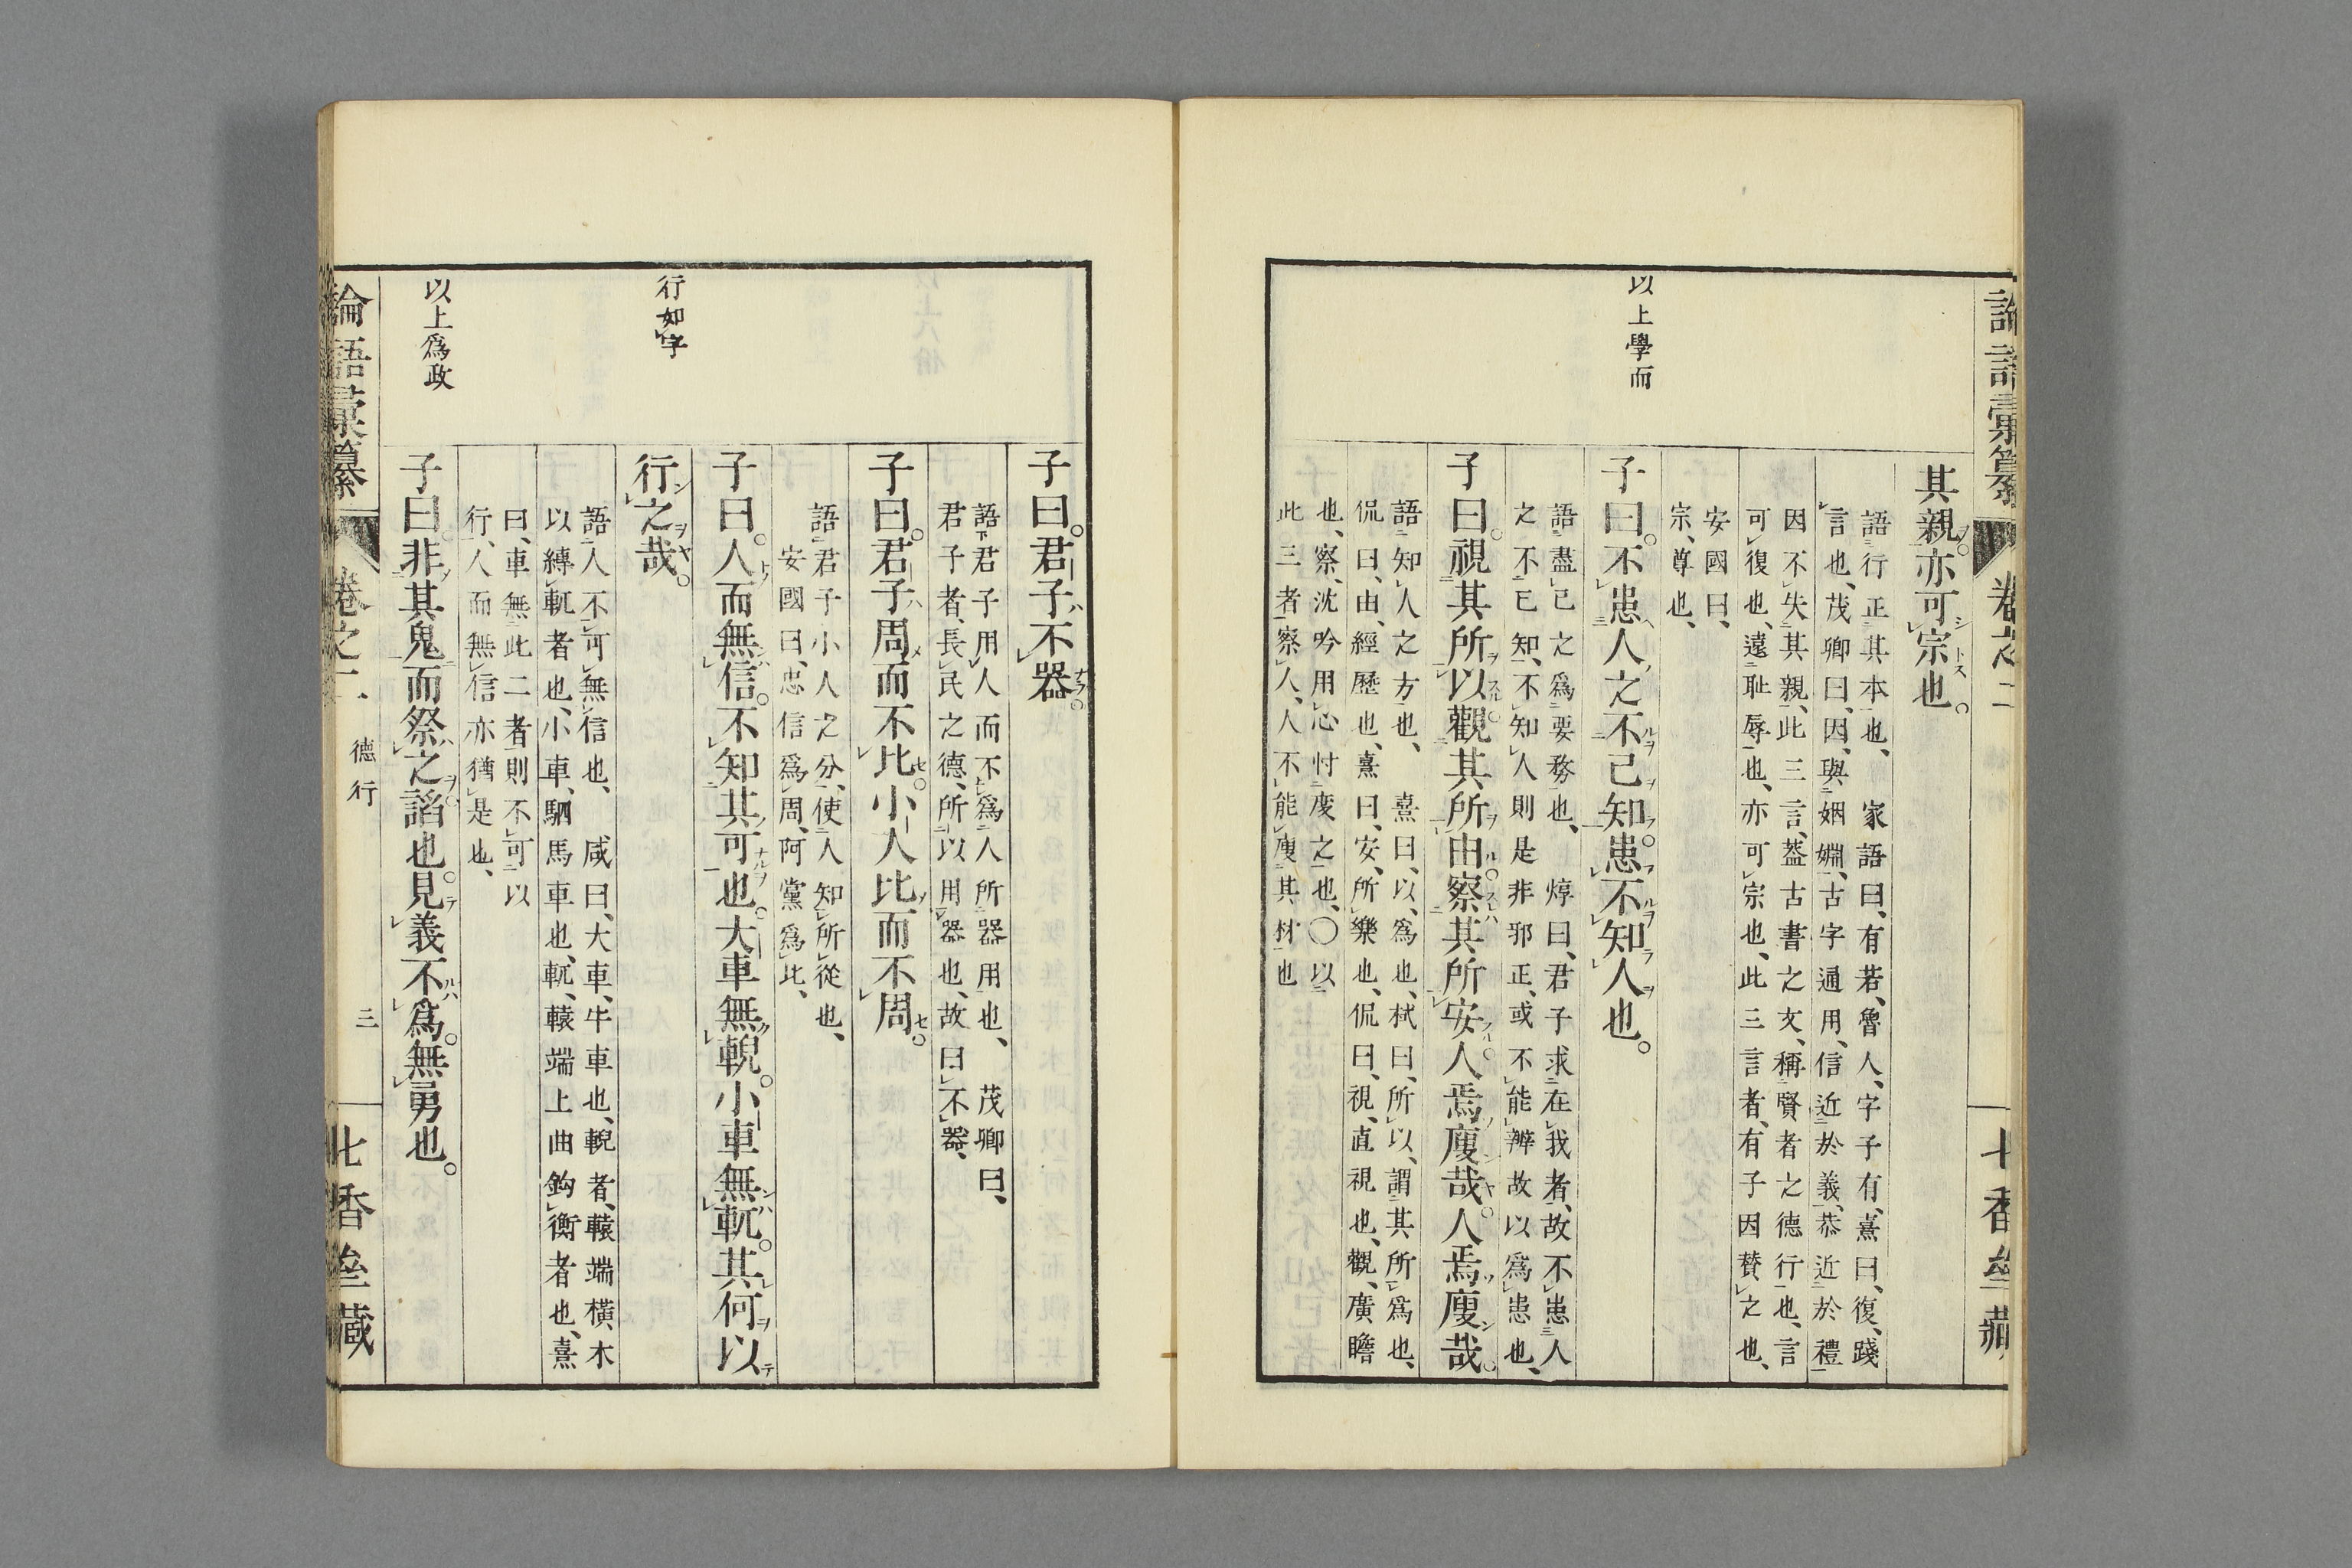 論語彙纂 卷之二 七香坣藏
其親。亦可宗也。
語行正其本也、 家語曰、有若、魯人、字子有、熹曰、復、踐
言也、茂卿曰、因、與姻婣、古字通用、信近於義、恭近於禮
因不失其親、此三言、蓋古書之文、稱賢者之德行也、言
可復也、遠耻辱也、亦可宗也、此三言者、有子因賛之也、
安國曰、
宗、尊也、
以上學而
子曰。不患人之不己知。患不知人也。
語盡己之爲要務也、 焞曰、君子求在我者、故不患人
之不已知、不知人則是非邪正、或不能辨故以爲患也、
子曰。視其所以。觀其所由。察其所安。人焉廋哉。人焉廋哉。
語知人之方也、 熹曰、以、爲也、栻曰、所以、謂其所爲也、
侃曰、由、經歷也、熹曰、安、所樂也、侃曰、視、直視也、觀、廣瞻
也、察、沈吟用心忖度之也、〇以
此三者察人、人不能廋其材也
子曰。君子不器。
語君子用人而不爲人所器用也、 茂卿曰、
君子者、長民之德、所以用器也、故曰不器、
子曰。君子周而不比。小人比而不周。
語君子小人之分、使人知所從也、
安國曰、忠信爲周、阿黨爲比、
子曰。人而無信。不知其可也。大車無輗。小車無軏。其何以
行如字
行之哉。
語人不可無信也、 咸曰、大車、牛車也、輗者、轅端橫木
以縛軏者也、小車、駟馬車也、軏、轅端上曲鈎衡者也、熹
曰、車無此二者、則不可以
行、人而無信亦猶是也、
以上爲政
子曰。非其鬼而祭之。諂也。見義不爲。無勇也。
論語彙纂 卷之二 德行 三 七香坣藏